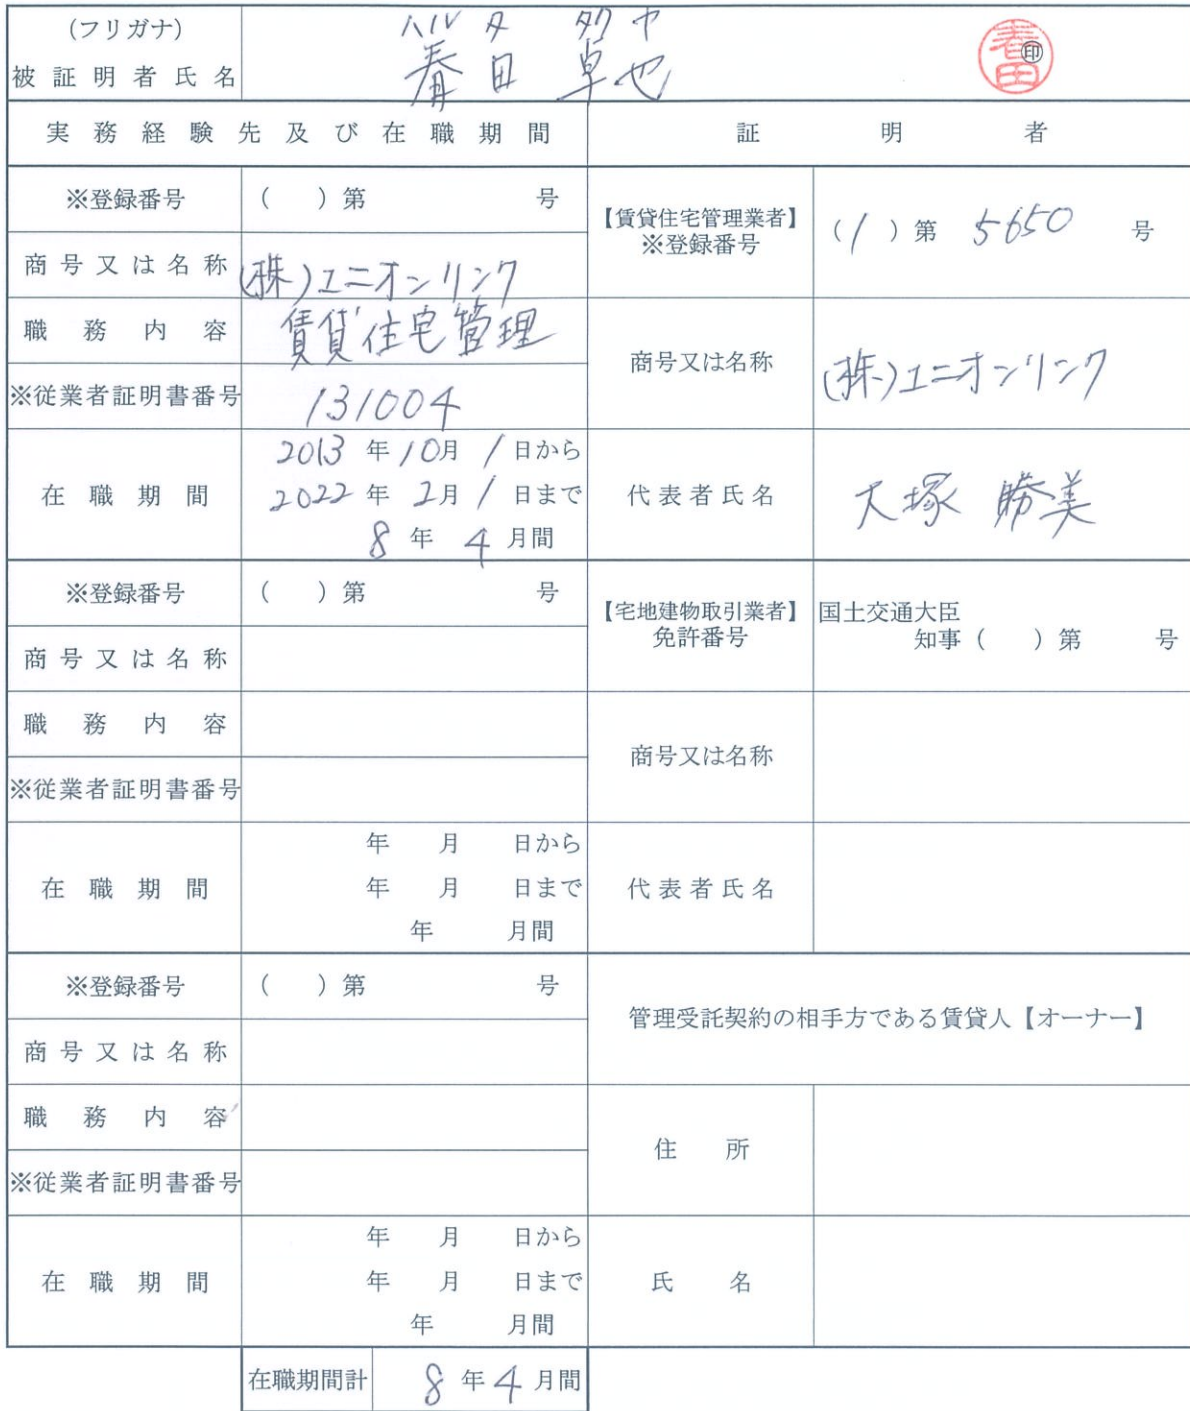 (フリガナ) ハルタ タクヤ
被証明者氏名 春田 卓也 春田 ㊞
実務経験先及び在職期間 証明者
※登録番号 ( )第 号
【賃貸住宅管理業者】
※登録番号 (1)第 5650 号
商号又は名称 (株)ユニオンリンク
職務内容 賃貸住宅管理
商号又は名称 (株)ユニオンリンク
※従業者証明書番号 131004
在職期間
2013年10月1日から
2022年2月1日まで
8年4月間
代表者氏名 大塚 勝美
※登録番号 ( )第 号
【宅地建物取引業者】
免許番号
国土交通大臣
知事( )第 号
商号又は名称
職務内容
商号又は名称
※従業者証明書番号
在職期間
年 月 日から
年 月 日まで
年 月間
代表者氏名
※登録番号 ( )第 号
管理受託契約の相手方である賃貸人【オーナー】
商号又は名称
職務内容
住所
※従業者証明書番号
在職期間
年 月 日から
年 月 日まで
年 月間
氏名
在職期間計 8年4月間